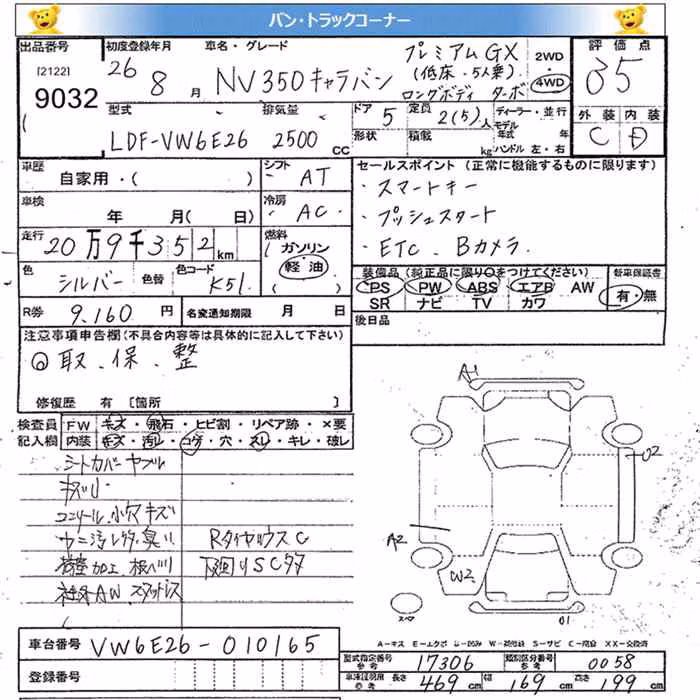 バン・トラックコーナー
出品番号
[2122]
9032
初度登録年月
26 8 月
車名・グレード
NV350キャラバン
プレミアムGX
(低床・5人乗)
ロングボディ ターボ
2WD
・
4WD
評価点
35
外装 内装
C D
型式
LDF-VW6E26
排気量
2500 CC
ドア 5
形状
定員 2(5)人
積載 kg
ディーラー・並行
モデル
年式 年
ハンドル 左・右
車歴
自家用・( )
シフト
AT
車検
年 月( 日)
冷房
AC
走行
20万9千352km
燃料
ガソリン
軽油
色
シルバー 色替
色コード K51
R券 9.160 円
名変通知期限 月 日
セールスポイント (正常に機能するものに限ります)
・スマートキー
・プッシュスタート
・ETC. Bカメラ.
装備品(純正品に限り○をつけてください)
PS PW ABS エアB AW
SR ナビ TV カワ
新車保証書
有・無
後日品
注意事項申告欄(不具合内容等は具体的に記入して下さい)
取.保.整
修復歴 有 [箇所 ]
検査員
記入欄
FW キズ・飛石・ヒビ割・リペア跡・×要
内装 キズ・汚レ・コゲ・穴・スレ・キレ・破レ
シートカバーヤブレ
キズ
小穴キズ
加工.
社外AW スタッドレス
RタイヤハウスC
下廻りSC
A1
O2
A2
W2
スペア
01
A=キズ E=エクボ U=凹み W=補修跡 S=サビ C=腐食 XX=交換済
車台番号 VW6E26-010165
登録番号
型式指定番号
参考
17306
類別区分番号
参考
0058
車庫証明用
参考
長さ 469cm 幅 169cm 高さ 199cm